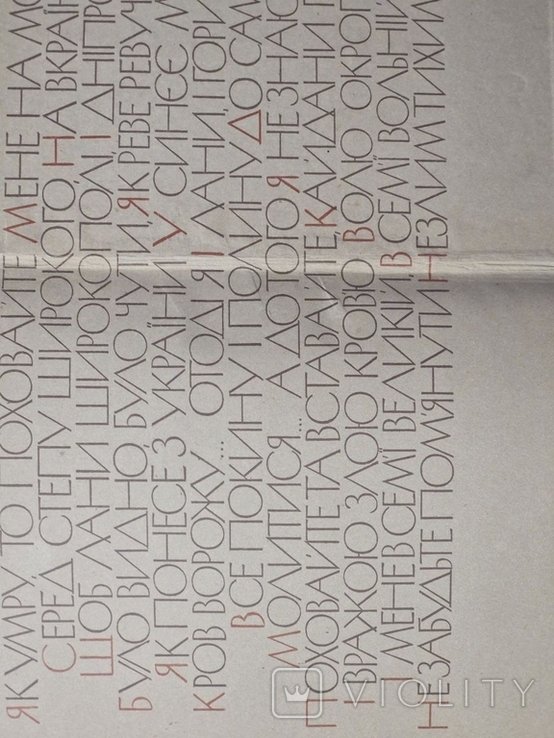 ЯК УМРУ, ТО ПОХОВАЙТЕ МЕНЕ НА МО
СЕРЕД СТЕПУ ШИРОКОГО, НА ВКРАЇН
ЩОБ ЛАНИ ШИРОКОПОЛІ, І ДНІПРО
БУЛО ВИДНО, БУЛО ЧУТИ, ЯК РЕВЕ РЕВУЧ
ЯК ПОНЕСЕ З УКРАЇНИ У СИНЄЄ М
КРОВ ВОРОЖУ... ОТОДІ Я І ЛАНИ, І ГОРИ
ВСЕ ПОКИНУ І ПОЛИНУ ДО САМ
МОЛИТИСЯ... А ДОТОГО Я НЕ ЗНАЮ
ПОХОВАЙТЕ ТА ВСТАВАЙТЕ, КАЙДАНИ
І ВРАЖОЮ ЗЛОЮ КРОВ'Ю ВОЛЮ ОКРОП
І МЕНЕ В СЕМ'Ї ВЕЛИКІЙ, В СЕМ'Ї ВОЛЬНІЙ
НЕ ЗАБУДЬТЕ ПОМ'ЯНУТИ НЕЗЛИМ ТИХИМ
VIOLITY